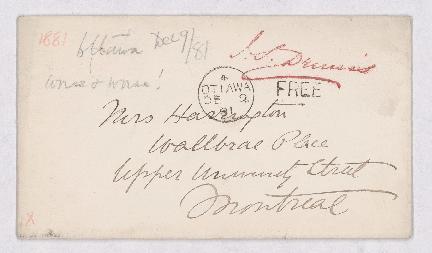 1881
Ottawa Dec 9/81
worse & worse!
J. S. Dennis
4
OTTAWA
DE 9
81
FREE
Mrs Harrington
Wallbrae Place
Upper University Street
Montreal
X